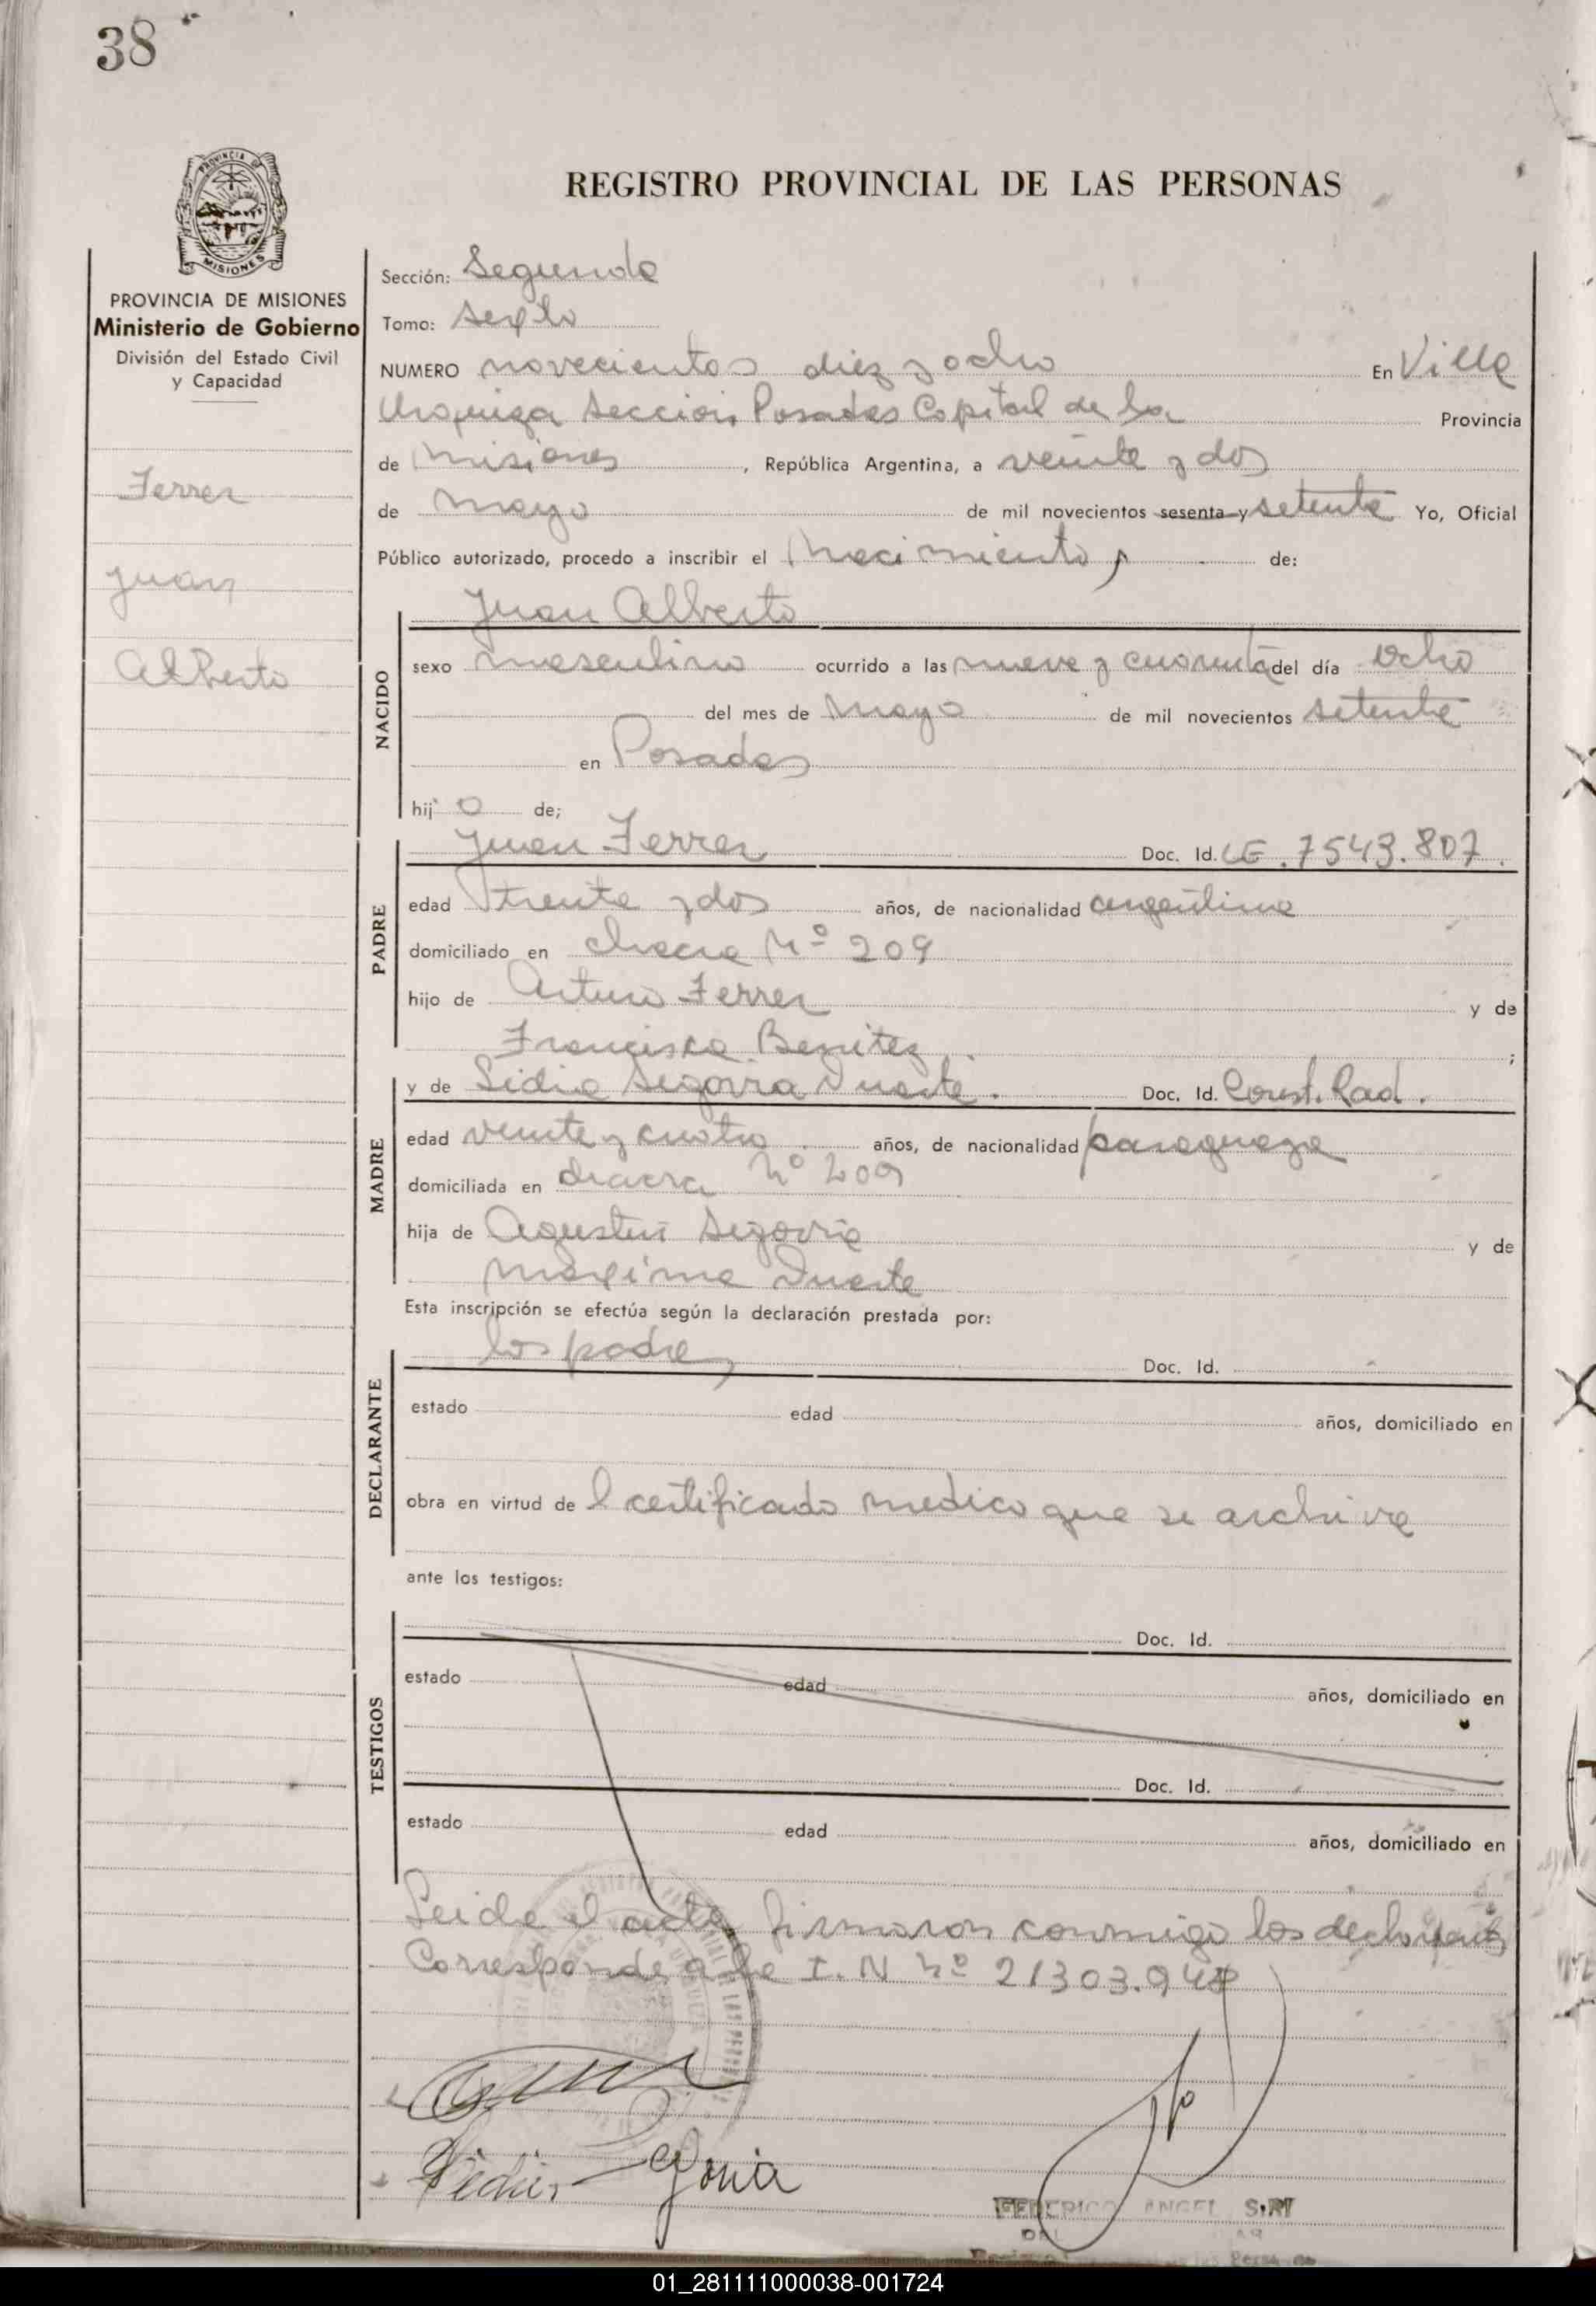 38
PROVINCIA DE
MISIONES
REGISTRO PROVINCIAL DE LAS PERSONAS
PROVINCIA DE MISIONES
Ministerio de Gobierno
División del Estado Civil
y Capacidad
Ferrer
Juan
Alberto
Sección: Segunda
Tomo: Sexto
NUMERO novecientos diez y ocho En Villa
Urquiza Sección Posadas Capital de la Provincia
de Misiones, República Argentina, a veinte y dos
de mayo de mil novecientos sesenta y setenta Yo, Oficial
Público autorizado, procedo a inscribir el Nacimiento de:
Juan Alberto
NACIDO
sexo masculino ocurrido a las nueve y cuarenta del día ocho
del mes de mayo de mil novecientos setenta
en Posadas
hij o de;
PADRE
Juan Ferrer Doc. Id. LE. 7543.807.
edad treinta y dos años, de nacionalidad argentina
domiciliado en chacra Nº 209
hijo de Arturo Ferrer y de
Francisca Benitez ;
MADRE
y de Lidia Segovia Duarte. Doc. Id. Const. Rad.
edad veinte y cuatro años, de nacionalidad paraguaya
domiciliada en chacra Nº 209
hija de Agustin Segovia y de
Maxima Duarte
Esta inscripción se efectúa según la declaración prestada por:
DECLARANTE
los padres Doc. Id.
estado edad años, domiciliado en
obra en virtud de l certificado medico que se archiva
ante los testigos:
TESTIGOS
Doc. Id.
estado edad años, domiciliado en
Doc. Id.
estado edad años, domiciliado en
Leida el acta, firmaron conmigo los declarantes
Corresponde a la I. N Nº 21303.948
FEDERICO ANGEL
01_281111000038-001724